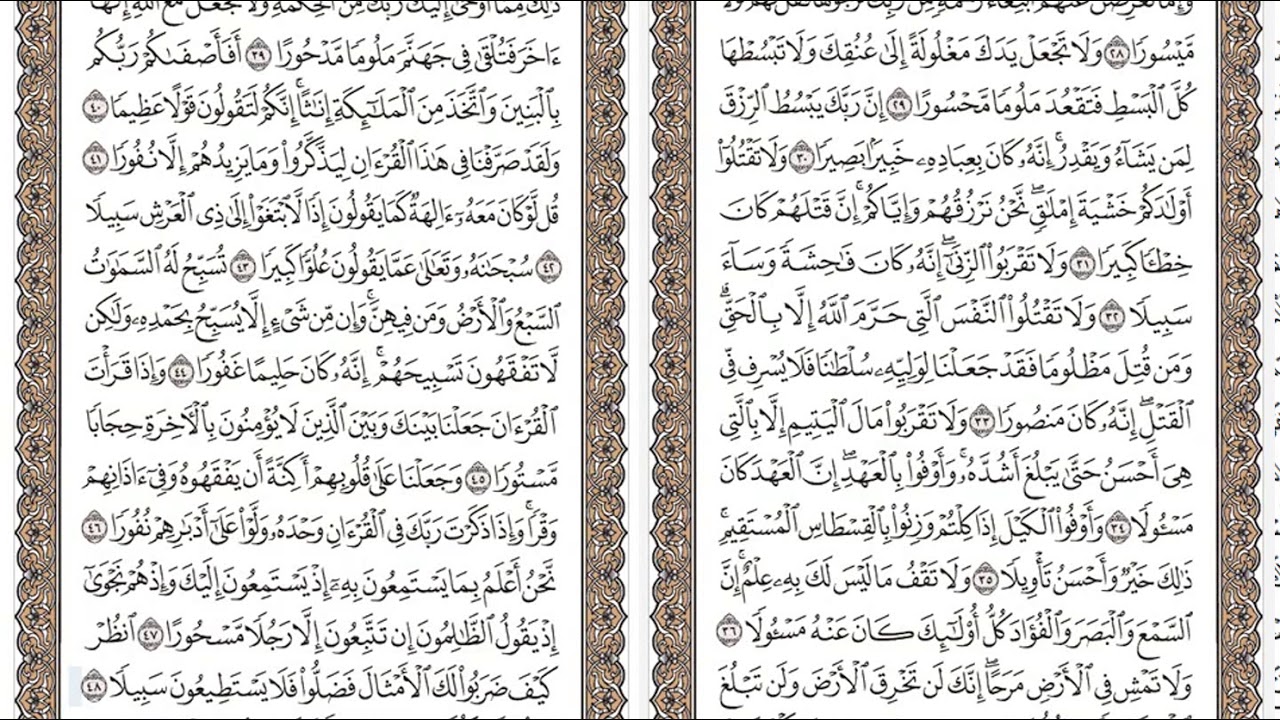 وَإِمَّا تُعْرِضَنَّ عَنْهُمُ ٱبْتِغَآءَ رَحْمَةٍ مِّن رَّبِّكَ تَرْجُوهَا فَقُل لَّهُمْ قَوْلًا
مَّيْسُورًا ٢٨ وَلَا تَجْعَلْ يَدَكَ مَغْلُولَةً إِلَىٰ عُنُقِكَ وَلَا تَبْسُطْهَا
كُلَّ ٱلْبَسْطِ فَتَقْعُدَ مَلُومًا مَّحْسُورًا ٢٩ إِنَّ رَبَّكَ يَبْسُطُ ٱلرِّزْقَ
لِمَن يَشَآءُ وَيَقْدِرُ ۚ إِنَّهُۥ كَانَ بِعِبَادِهِۦ خَبِيرًۢا بَصِيرًا ٣٠ وَلَا تَقْتُلُوٓا۟
أَوْلَٰدَكُمْ خَشْيَةَ إِمْلَٰقٍ ۖ نَّحْنُ نَرْزُقُهُمْ وَإِيَّاكُمْ ۚ إِنَّ قَتْلَهُمْ كَانَ
خِطْـًٔا كَبِيرًا ٣١ وَلَا تَقْرَبُوا۟ ٱلزِّنَىٰٓ ۖ إِنَّهُۥ كَانَ فَٰحِشَةً وَسَآءَ
سَبِيلًا ٣٢ وَلَا تَقْتُلُوا۟ ٱلنَّفْسَ ٱلَّتِى حَرَّمَ ٱللَّهُ إِلَّا بِٱلْحَقِّ ۗ
وَمَن قُتِلَ مَظْلُومًا فَقَدْ جَعَلْنَا لِوَلِيِّهِۦ سُلْطَٰنًا فَلَا يُسْرِف فِّى
ٱلْقَتْلِ ۖ إِنَّهُۥ كَانَ مَنصُورًا ٣٣ وَلَا تَقْرَبُوا۟ مَالَ ٱلْيَتِيمِ إِلَّا بِٱلَّتِى
هِىَ أَحْسَنُ حَتَّىٰ يَبْلُغَ أَشُدَّهُۥ ۚ وَأَوْفُوا۟ بِٱلْعَهْدِ ۖ إِنَّ ٱلْعَهْدَ كَانَ
مَسْـُٔولًا ٣٤ وَأَوْفُوا۟ ٱلْكَيْلَ إِذَا كِلْتُمْ وَزِنُوا۟ بِٱلْقِسْطَاسِ ٱلْمُسْتَقِيمِ ۚ
ذَٰلِكَ خَيْرٌ وَأَحْسَنُ تَأْوِيلًا ٣٥ وَلَا تَقْفُ مَا لَيْسَ لَكَ بِهِۦ عِلْمٌ ۚ إِنَّ
ٱلسَّمْعَ وَٱلْبَصَرَ وَٱلْفُؤَادَ كُلُّ أُو۟لَٰٓئِكَ كَانَ عَنْهُ مَسْـُٔولًا ٣٦
وَلَا تَمْشِ فِى ٱلْأَرْضِ مَرَحًا ۖ إِنَّكَ لَن تَخْرِقَ ٱلْأَرْضَ وَلَن تَبْلُغَ
ذَٰلِكَ مِمَّآ أَوْحَىٰٓ إِلَيْكَ رَبُّكَ مِنَ ٱلْحِكْمَةِ ۗ وَلَا تَجْعَلْ مَعَ ٱللَّهِ إِلَٰهًا
ءَاخَرَ فَتُلْقَىٰ فِى جَهَنَّمَ مَلُومًا مَّدْحُورًا ٣٩ أَفَأَصْفَىٰكُمْ رَبُّكُم
بِٱلْبَنِينَ وَٱتَّخَذَ مِنَ ٱلْمَلَٰٓئِكَةِ إِنَٰثًا ۚ إِنَّكُمْ لَتَقُولُونَ قَوْلًا عَظِيمًا ٤٠
وَلَقَدْ صَرَّفْنَا فِى هَٰذَا ٱلْقُرْءَانِ لِيَذَّكَّرُوا۟ وَمَا يَزِيدُهُمْ إِلَّا نُفُورًا ٤١
قُل لَّوْ كَانَ مَعَهُۥٓ ءَالِهَةٌ كَمَا يَقُولُونَ إِذًا لَّٱبْتَغَوْا۟ إِلَىٰ ذِى ٱلْعَرْشِ سَبِيلًا
٤٢ سُبْحَٰنَهُۥ وَتَعَٰلَىٰ عَمَّا يَقُولُونَ عُلُوًّا كَبِيرًا ٤٣ تُسَبِّحُ لَهُ ٱلسَّمَٰوَٰتُ
ٱلسَّبْعُ وَٱلْأَرْضُ وَمَن فِيهِنَّ ۚ وَإِن مِّن شَىْءٍ إِلَّا يُسَبِّحُ بِحَمْدِهِۦ وَلَٰكِن
لَّا تَفْقَهُونَ تَسْبِيحَهُمْ ۗ إِنَّهُۥ كَانَ حَلِيمًا غَفُورًا ٤٤ وَإِذَا قَرَأْتَ
ٱلْقُرْءَانَ جَعَلْنَا بَيْنَكَ وَبَيْنَ ٱلَّذِينَ لَا يُؤْمِنُونَ بِٱلْأَخِرَةِ حِجَابًا
مَّسْتُورًا ٤٥ وَجَعَلْنَا عَلَىٰ قُلُوبِهِمْ أَكِنَّةً أَن يَفْقَهُوهُ وَفِىٓ ءَاذَانِهِمْ
وَقْرًا ۚ وَإِذَا ذَكَرْتَ رَبَّكَ فِى ٱلْقُرْءَانِ وَحْدَهُۥ وَلَّوْا۟ عَلَىٰٓ أَدْبَٰرِهِمْ نُفُورًا ٤٦
نَّحْنُ أَعْلَمُ بِمَا يَسْتَمِعُونَ بِهِۦٓ إِذْ يَسْتَمِعُونَ إِلَيْكَ وَإِذْ هُمْ نَجْوَىٰٓ
إِذْ يَقُولُ ٱلظَّٰلِمُونَ إِن تَتَّبِعُونَ إِلَّا رَجُلًا مَّسْحُورًا ٤٧ ٱنظُرْ
كَيْفَ ضَرَبُوا۟ لَكَ ٱلْأَمْثَالَ فَضَلُّوا۟ فَلَا يَسْتَطِيعُونَ سَبِيلًا ٤٨